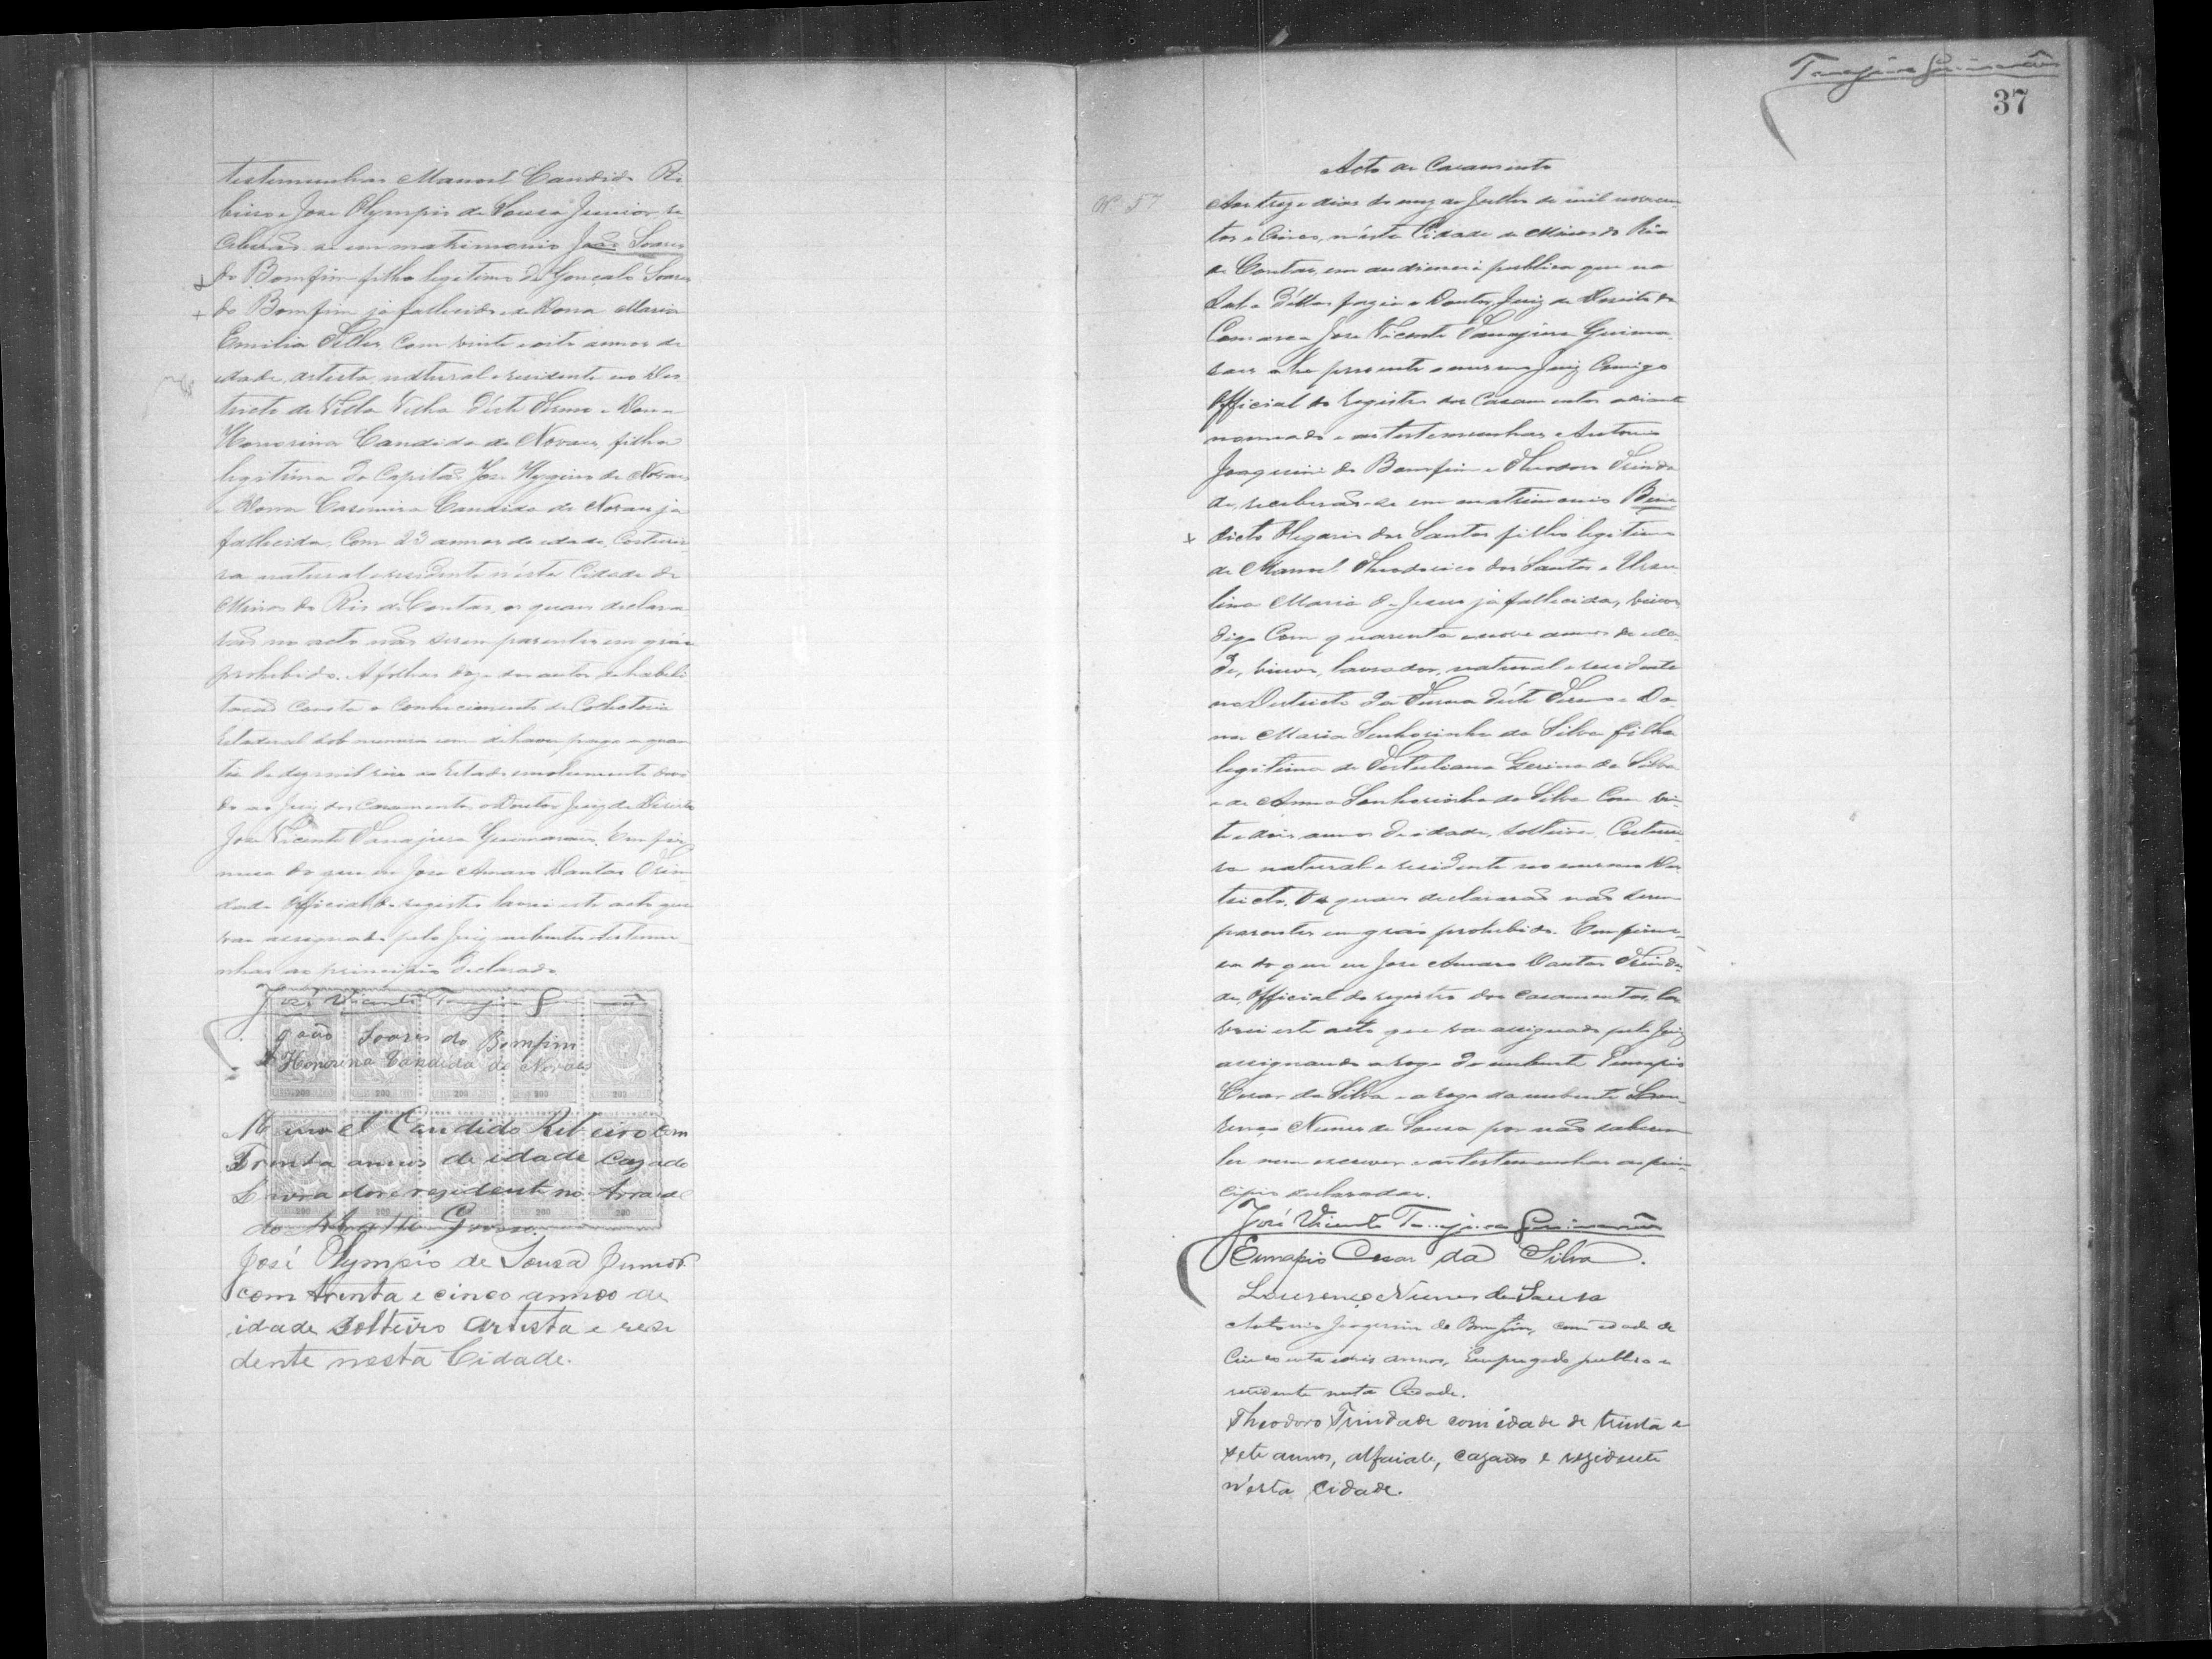 testemunhas Manoel Candido Ri
beiro e Jose Olympio de Sousa Junior, re
ceberão-se em matrimonio João Soares
do Bomfim filho legitimo de Gonçalo Soares
do Bomfim já fallecido e de Dona Maria
Emilia Telles, com vinte e oito annos de
idade, artista, natural e residente no Dis
tricto de Villa Velha d'este Termo e Dona
Honorina Candida de Novaes, filha
legitima do Capitão Jose Hygino de Novaes
e Dona Casemira Candida de Novaes já
fallecida, com 23 annos de idade, Costurei
ra natural e residente n'esta Cidade de
Minas do Rio de Contas, os quaes declara
rão no acto não serem parentes em gráo
prohibido. A folhas doze dos autos de habili
tação consta o conhecimento da Collectoria
Estadoal sob numero um de haver pago a quan
tia de dez mil réis ao Estado emolumento devi
do ao Juiz dos Casamentos o Doutor Juiz de Direito
Jose Vicente Tanajura Guimaraes. Em fir
mesa do que eu Jose Amaro Dantas Trin
dade Official do registro lavrei este acto que
vae assignado pelo Juiz nubentes testemu
nhas ao principio declarado
José Vicente Tanajura Guimarães
João Soares do Bomfim
Honorina Candida de Novaes
Manoel Candido Ribeiro com
Trinta annos de idade Cazado
Lavrador e rezidente no Arraial
do Matto Grosso.
José Olympio de Sousa Junior
com trinta e cinco annos de
idade solteiro artista e resi
dente nesta Cidade.
Tanajura Guimarães
37
Acto de Casamento
Nº 57
Aos treze dias do mez de Julho de mil novecen
tos e Cinco, n'esta Cidade de Minas do Rio
de Contas, em audiencia publica que na
Sala d'ellas fazia o Doutor Juiz de Direito da
Comarca Jose Vicente Tanajura Guima
raes ahi presente o mesmo Juiz Comigo
Official do registro dos Casamentos adiante
nomeado e as testemunhas Antonio
Joaquim do Bomfim e Theodoro Trinda
de, receberão-se em matrimonio Bene
dicto Olegario dos Santos filho legitimo
de Manoel Theodorico dos Santos e Ursu
lina Maria de Jesus já fallecida, viuvo
digo Com quarenta e nove annos de ida
de, viuvo, lavrador, natural e residente
no Districto da Furna d'este Termo e Do
na Maria Senhorinha da Silva filha
legitima de Tertuliano da Silva
e de Anna Senhorinha da Silva Com vin
te e dois annos de idade, solteira, Costurei
ra natural e residente no mesmo Dis
tricto. Os quaes declararão não serem
parentes em gráo prohibido. Em firme
sa do que eu Jose Amaro Dantas Trinda
de, Official do registro dos casamentos, la
vrei este acto que vae assignado pelo Juiz
assignando a rogo do nubente Eunapio
Cesar da Silva e a rogo da nubente Lou
renço Nunes de Sousa por não saberem
ler nem escrever e as testemunhas ao prin
cipio declaradas.
José Vicente Tanajura Guimarães
Eunapio Cesar da Silva.
Lourenço Nunes de Sousa
Antonio Joaquim do Bomfim, com idade de
Cincoenta e dois annos, Empregado publico e
residente nesta Cidade.
Theodoro Trindade com idade de trinta e
sete annos, alfaiate, cazado e rezidente
n'esta cidade.